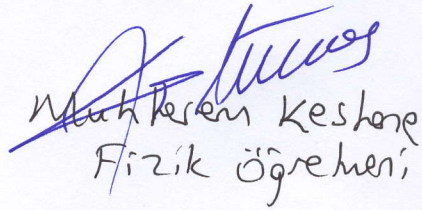 Muhterem Kestane
Fizik Öğretmeni